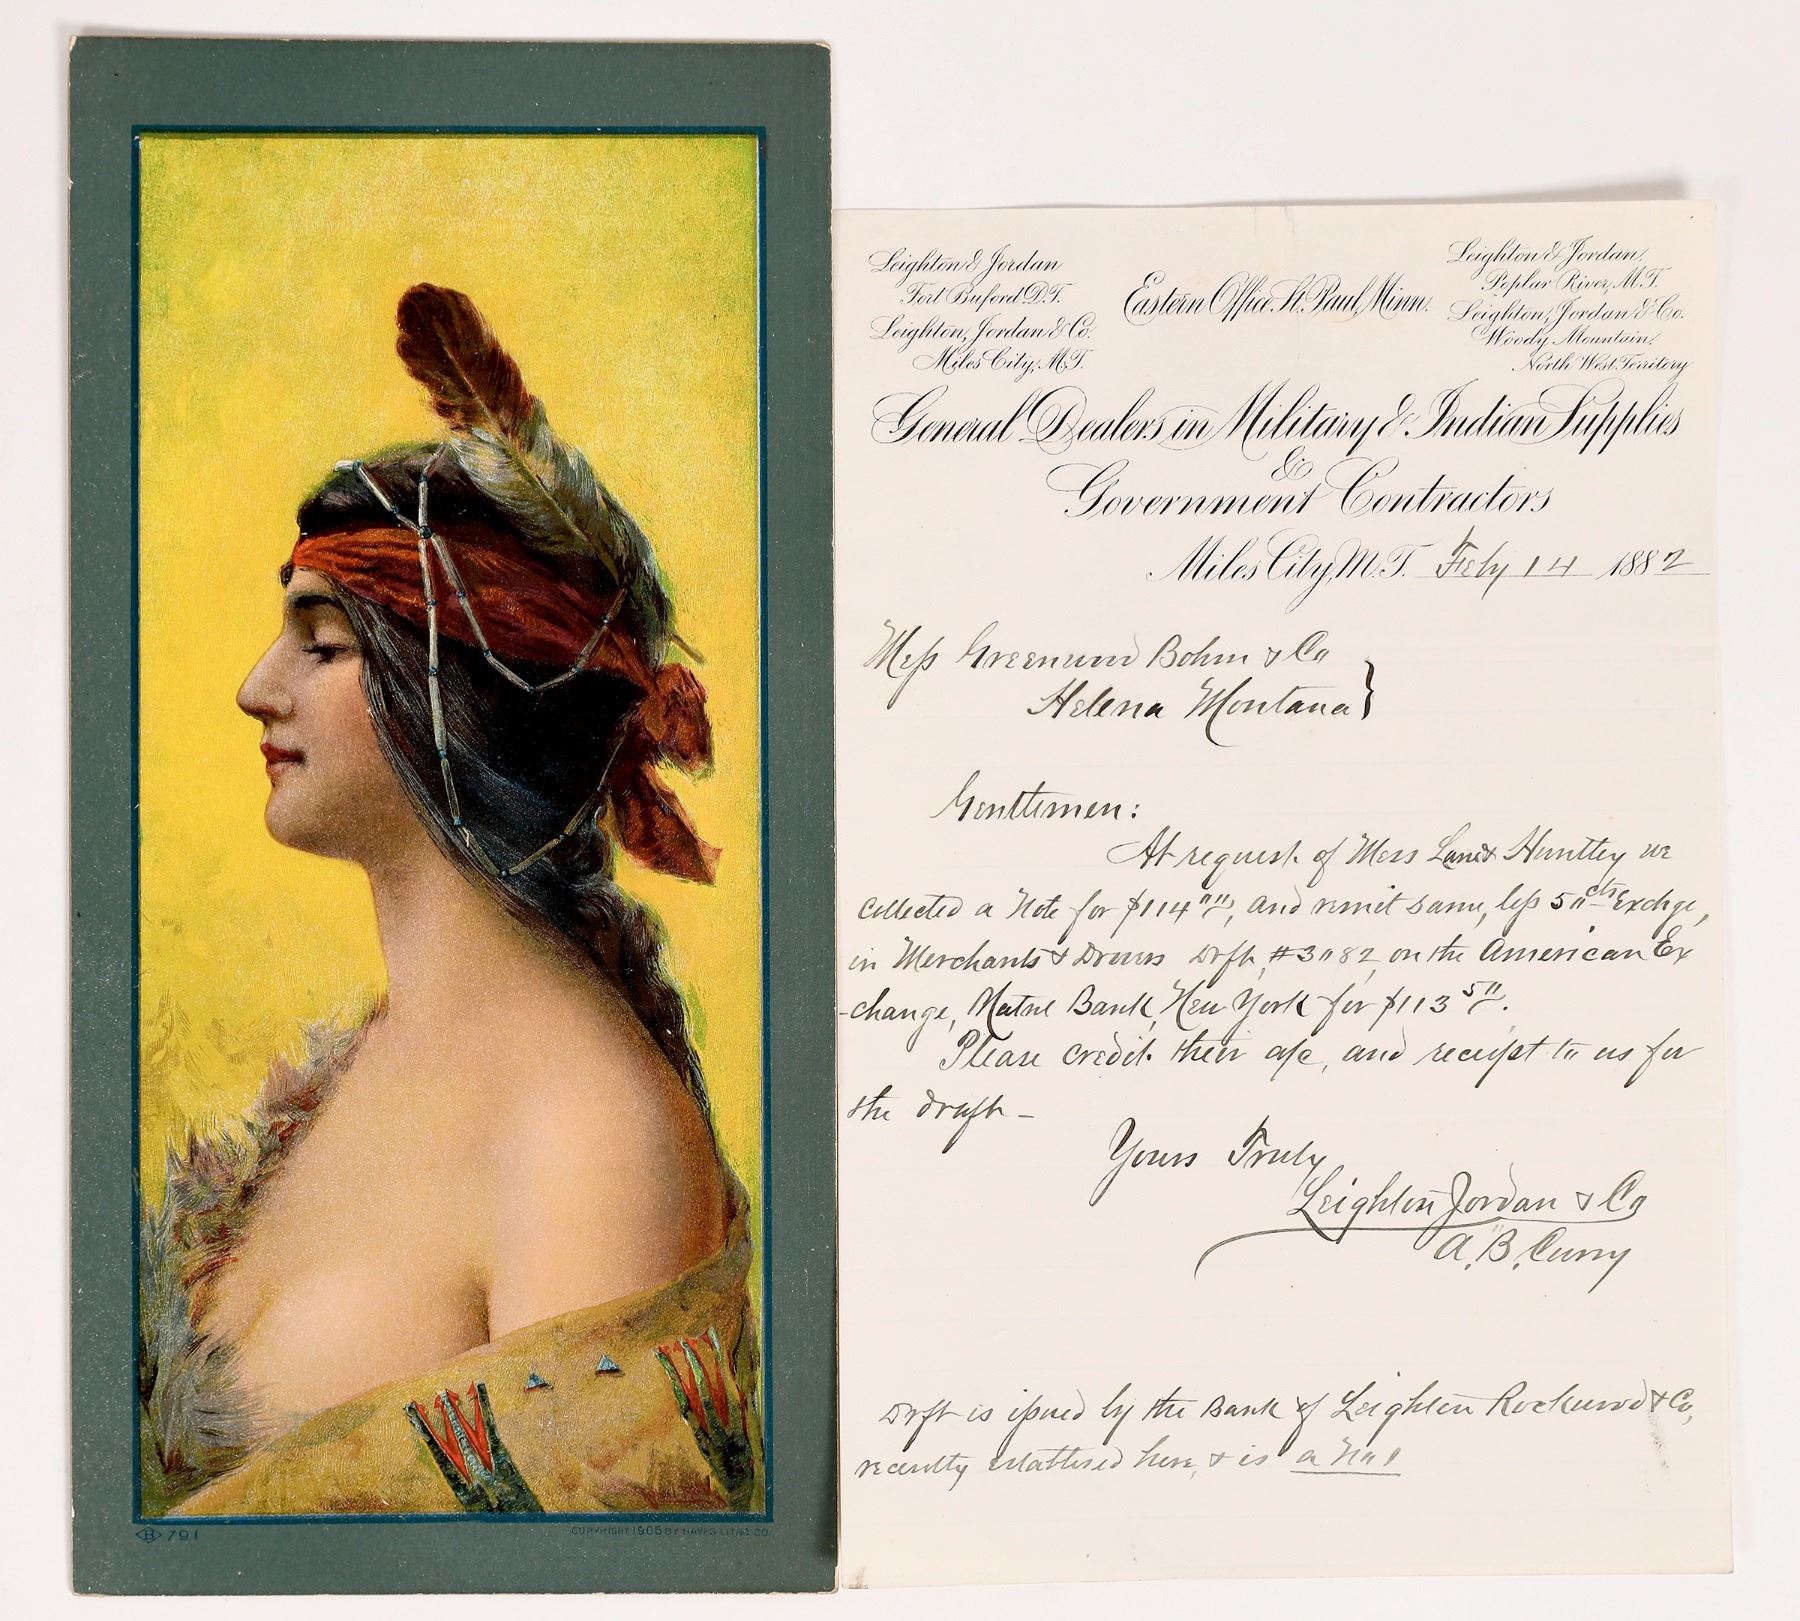 B 791
COPYRIGHT 1905 BY HAYES LITHO. CO.
Leighton & Jordan
Fort Buford D.T.
Leighton, Jordan & Co.
Miles City, M.T.
Eastern Office St. Paul, Minn.
Leighton & Jordan,
Poplar River, M.T.
Leighton, Jordan & Co.
Woody Mountain,
North West Territory
General Dealers in Military & Indian Supplies
&
Government Contractors
Miles City, M.T. Feby 14 1882
Mess Greenwood Bohm & Co
Helena Montana }
Gentlemen:
At request of Mess Lane & Huntley we
collected a Note for $114 00, and remit same, less 50 cts Exchge,
in Merchants & Drovers Drft, #3082, on the American Ex
-change, Natnl Bank, New York for $113 50.
Please credit their a/c, and receipt to us for
the draft -
Yours Truly
Leighton Jordan & Co
A. B. Curry
Drft is issued by the Bank of Leighton Rockwood & Co,
recently established here, & is a No 1